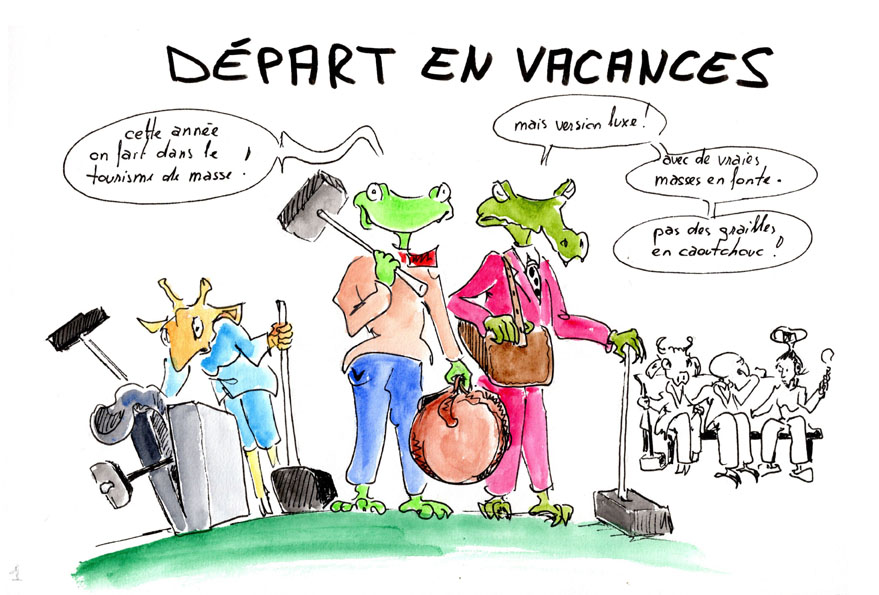 DÉPART EN VACANCES
cette année
on fait dans le
tourisme de masse !
mais version luxe !
avec de vraies
masses en fonte.
pas des grailles
en caoutchouc !
1